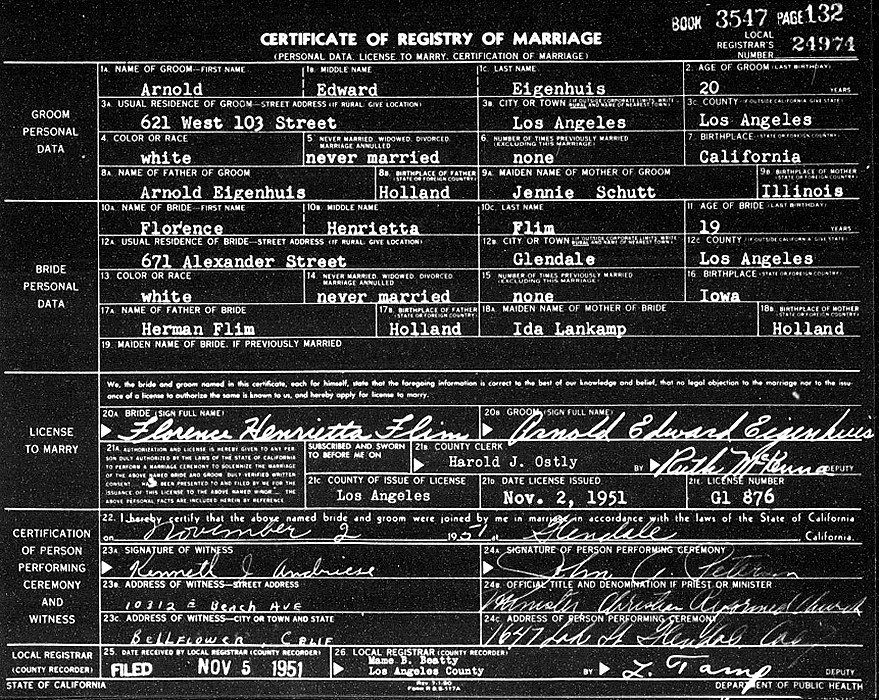 BOOK 3547 PAGE 132
CERTIFICATE OF REGISTRY OF MARRIAGE
LOCAL REGISTRAR'S NUMBER 24974
(PERSONAL DATA, LICENSE TO MARRY, CERTIFICATION OF MARRIAGE)
GROOM PERSONAL DATA
1A. NAME OF GROOM—FIRST NAME 1B. MIDDLE NAME 1C. LAST NAME 2. AGE OF GROOM (LAST BIRTHDAY)
Arnold Edward Eigenhuis 20 YEARS
3A. USUAL RESIDENCE OF GROOM—STREET ADDRESS (IF RURAL, GIVE LOCATION) 3B. CITY OR TOWN (IF OUTSIDE CORPORATE LIMITS, WRITE RURAL AND NAME OF NEAREST TOWN) 3C. COUNTY (IF OUTSIDE CALIFORNIA, GIVE STATE)
621 West 103 Street Los Angeles Los Angeles
4. COLOR OR RACE 5. NEVER MARRIED, WIDOWED, DIVORCED, MARRIAGE ANNULLED 6. NUMBER OF TIMES PREVIOUSLY MARRIED (EXCLUDING THIS MARRIAGE) 7. BIRTHPLACE (STATE OR FOREIGN COUNTRY)
white never married none California
8A. NAME OF FATHER OF GROOM 8B. BIRTHPLACE OF FATHER (STATE OR FOREIGN COUNTRY) 9A. MAIDEN NAME OF MOTHER OF GROOM 9B. BIRTHPLACE OF MOTHER (STATE OR FOREIGN COUNTRY)
Arnold Eigenhuis Holland Jennie Schutt Illinois
BRIDE PERSONAL DATA
10A. NAME OF BRIDE—FIRST NAME 10B. MIDDLE NAME 10C. LAST NAME 11. AGE OF BRIDE (LAST BIRTHDAY)
Florence Henrietta Flim 19 YEARS
12A. USUAL RESIDENCE OF BRIDE—STREET ADDRESS (IF RURAL, GIVE LOCATION) 12B. CITY OR TOWN (IF OUTSIDE CORPORATE LIMITS, WRITE RURAL AND NAME OF NEAREST TOWN) 12C. COUNTY (IF OUTSIDE CALIFORNIA, GIVE STATE)
671 Alexander Street Glendale Los Angeles
13. COLOR OR RACE 14. NEVER MARRIED, WIDOWED, DIVORCED, MARRIAGE ANNULLED 15. NUMBER OF TIMES PREVIOUSLY MARRIED (EXCLUDING THIS MARRIAGE) 16. BIRTHPLACE (STATE OR FOREIGN COUNTRY)
white never married none Iowa
17A. NAME OF FATHER OF BRIDE 17B. BIRTHPLACE OF FATHER (STATE OR FOREIGN COUNTRY) 18A. MAIDEN NAME OF MOTHER OF BRIDE 18B. BIRTHPLACE OF MOTHER (STATE OR FOREIGN COUNTRY)
Herman Flim Holland Ida Lankamp Holland
19. MAIDEN NAME OF BRIDE, IF PREVIOUSLY MARRIED
LICENSE TO MARRY
We, the bride and groom named in this certificate, each for himself, state that the foregoing information is correct to the best of our knowledge and belief, that no legal objection to the marriage nor to the issu-
ance of a license to authorize the same is known to us, and hereby apply for license to marry.
20A. BRIDE (SIGN FULL NAME) 20B. GROOM (SIGN FULL NAME)
Florence Henrietta Flim Arnold Edward Eigenhuis
21A. AUTHORIZATION AND LICENSE IS HEREBY GIVEN TO ANY PERSON DULY AUTHORIZED BY THE LAWS OF THE STATE OF CALIFORNIA TO PERFORM A MARRIAGE CEREMONY TO SOLEMNIZE THE MARRIAGE OF THE ABOVE NAMED BRIDE AND GROOM. DULY VERIFIED WRITTEN CONSENT HAS BEEN PRESENTED TO AND FILED BY ME FOR THE ISSUANCE OF THIS LICENSE TO THE ABOVE NAMED MINOR. THE ABOVE PERSONAL FACTS ARE INCLUDED HEREIN BY REFERENCE.
SUBSCRIBED AND SWORN TO BEFORE ME ON 21B. COUNTY CLERK
Harold J. Ostly BY Ruth McKenna DEPUTY
21C. COUNTY OF ISSUE OF LICENSE 21D. DATE LICENSE ISSUED 21E. LICENSE NUMBER
Los Angeles Nov. 2, 1951 G1 876
CERTIFICATION OF PERSON PERFORMING CEREMONY AND WITNESS
22. I hereby certify that the above named bride and groom were joined by me in marriage in accordance with the laws of the State of California
on November 2 1951 at Glendale, California.
23A. SIGNATURE OF WITNESS 24A. SIGNATURE OF PERSON PERFORMING CEREMONY
Kenneth J Andriese John A. Petersen
23B. ADDRESS OF WITNESS—STREET ADDRESS 24B. OFFICIAL TITLE AND DENOMINATION IF PRIEST OR MINISTER
10312 E Beach Ave Minister Christian Reformed Church
23C. ADDRESS OF WITNESS—CITY OR TOWN AND STATE 24C. ADDRESS OF PERSON PERFORMING CEREMONY
Bellflower, Calif 1647
LOCAL REGISTRAR (COUNTY RECORDER)
25. DATE RECEIVED BY LOCAL REGISTRAR (COUNTY RECORDER) 26. LOCAL REGISTRAR (COUNTY RECORDER)
FILED NOV 5 1951 Mame B. Beatty
Los Angeles County BY DEPUTY
STATE OF CALIFORNIA DEPARTMENT OF PUBLIC HEALTH